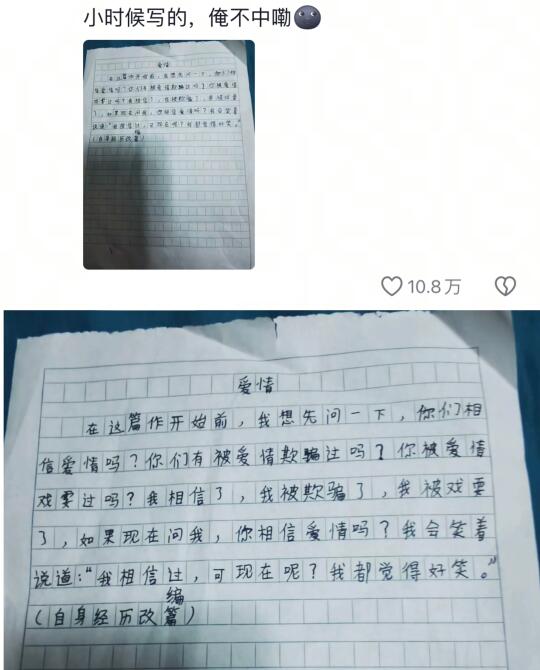 小时候写的，俺不中嘞
爱情
在这篇作开始前，我想先问一下，你们相
信爱情吗？你们有被爱情欺骗过吗？你被爱情
戏耍过吗？我相信了，我被欺骗了，我被戏耍
了，如果现在问我，你相信爱情吗？我会笑着
说道：“我相信过，可现在呢？我都觉得好笑。”
（自身经历改篇）
编
10.8万
爱情
在这篇作开始前，我想先问一下，你们相
信爱情吗？你们有被爱情欺骗过吗？你被爱情
戏耍过吗？我相信了，我被欺骗了，我被戏耍
了，如果现在问我，你相信爱情吗？我会笑着
说道：“我相信过，可现在呢？我都觉得好笑。”
编
（自身经历改篇）